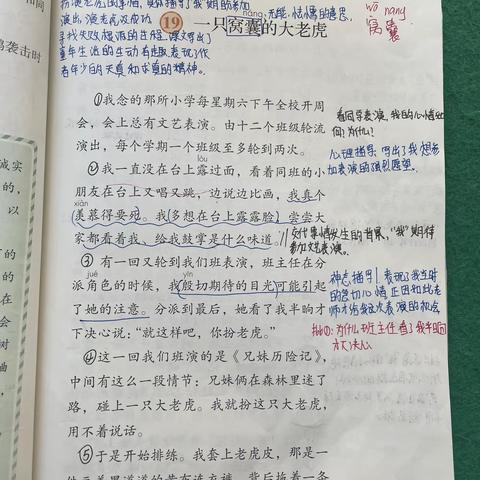 演出,演老虎以成功
寻找失败根源的过程,课文写出了
童年生活的生动有趣,表现了作
者年少的天真和求真的精神。
wō nang
窝囊
nāng
19 一只窝囊的大老虎
①我念的那所小学每星期六下午全校开周
会,会上总有文艺表演。由十二个班级轮流
演出,每个学期一个班级至多轮到两次。
②我一直没在台上露过面,看着同班的小
lòu
朋友在台上又唱又跳,边说边比画,我真个
xiàn
羡慕得要死。我多想在台上露露脸,尝尝大
家都看着我、给我鼓掌是什么味道。
③有一回又轮到我们班表演,班主任在分
jué yīn
派角色的时候,我殷切期待的目光可能引起
了她的注意。分派到最后,她看了我半晌才
下决心说:“就这样吧,你扮老虎。”
④这一回我们班演的是《兄妹历险记》,
中间有这么一段情节:兄妹俩在森林里迷了
路,碰上一只大老虎。我就扮这只大老虎,
用不着说话。
⑤于是开始排练。我套上老虎皮,那是一
看同学表演,我的心情如
何?为什么?
心理描写,写出了我想参
加表演的强烈愿望。
交代事情发生的背景,“我”期待
参加文艺表演。
神态描写!表现了我当时
的急切心情,正因如此老
师才
表演的机会
为什么班主任看了我半晌
才下决心
相同
鸟袭击时
诚实
的,
以
的
会
曲